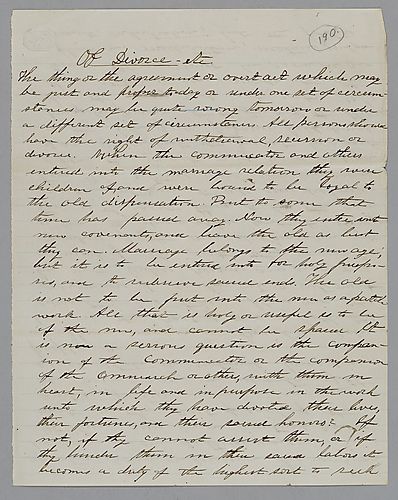 190.
Of Divorce - etc
The thing or the agreement or overt act which may
be just and proper today or under one set of circum
stances may be quite wrong tomorrow or under
a different set of circumstances. All persons should
have the right of withdrawal, secession or
divorce. When the communicator and others
entered into the marriage relation they were
children of and were bound to be loyal to
the old dispensation. But to some that
time has passed away. Now they enter into
new covenants, and leave the old as best
they can. Marriage belongs to the new age,
but it is to be entered into for holy purpo-
ses, and to subserve sacred ends. The old
is not to be put into the new as a patch
work. All that is holy or useful is to be
of the new, and cannot be spared. It
is now a serious question is the compan-
ion of the Communicator or the companion
of the or other, with them in
heart, in life and in purpose in the work
unto which they have devoted their lives,
their fortunes, and their sacred honors? If
not, if they cannot assist them, or if
they hinder them in their sacred labors it
becomes a duty of the highest sort to seek